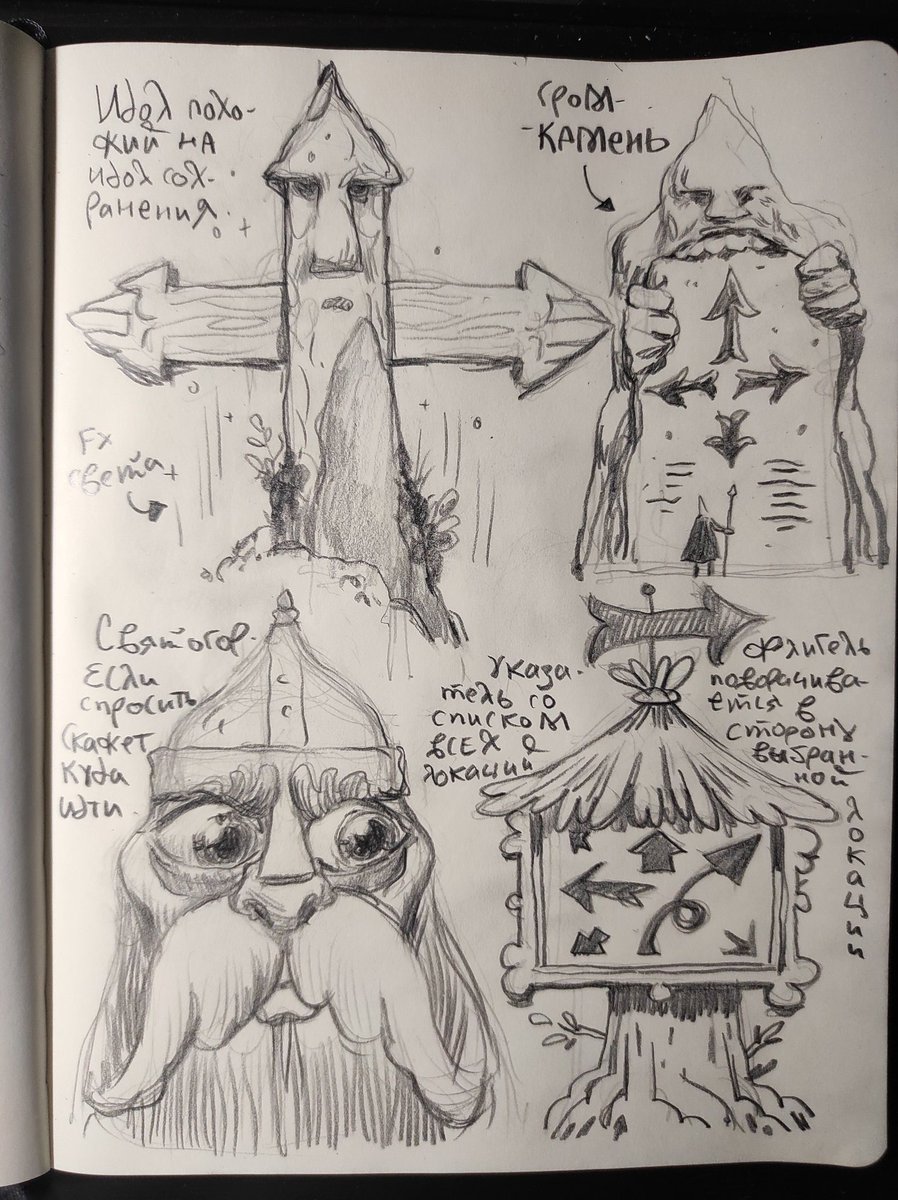 Идол похо-
жий на
идол сох-
ранения.
Гром-
-камень
FX
света
Святогор.
Если
спросить
скажет
куда
идти.
Указа-
тель со
списком
всех
локаций
Флюгель
поворачива-
ется в
сторону
выбран-
ной
локации